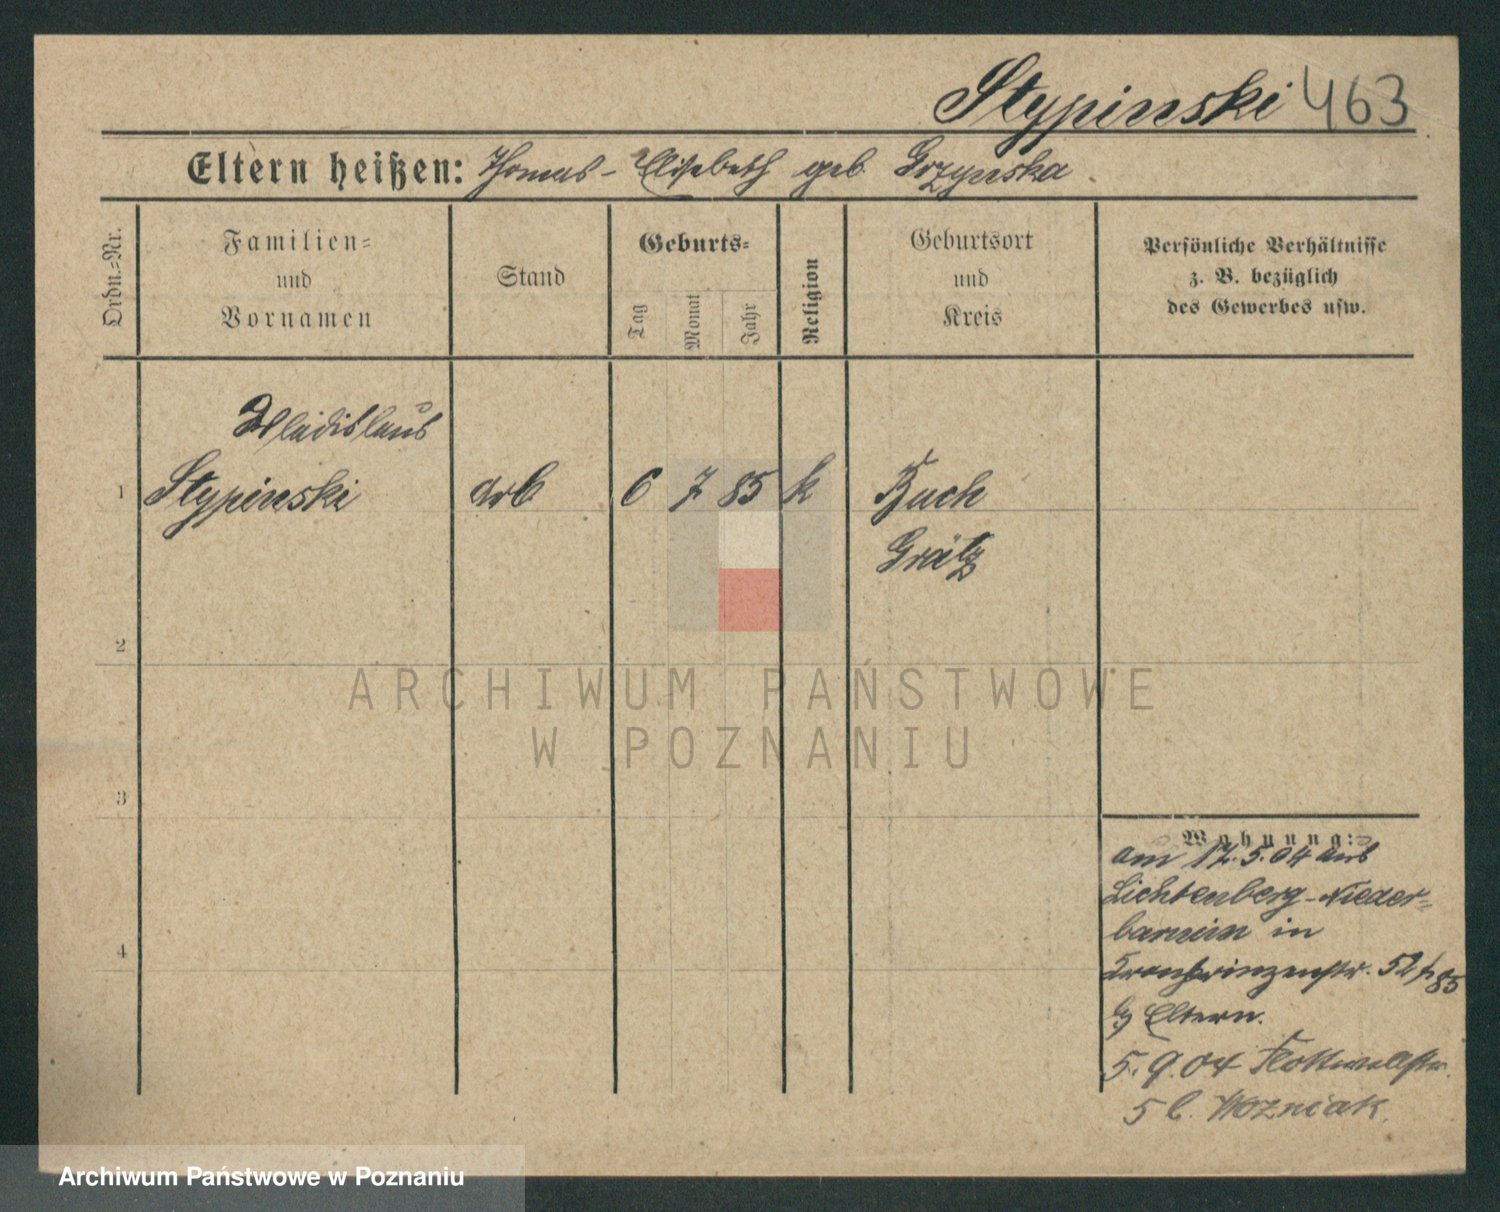 Stypinski 463
Eltern heißen: Thomas - Elisabeth geb. Grzynska
Ordn.=Nr.
Familien=
und
Vornamen
Stand
Geburts=
Tag
Monat
Jahr
Religion
Geburtsort
und
Kreis
Persönliche Verhältnisse
z. B. bezüglich
des Gewerbes usw.
Wladislaus
1 Stypinski arb 6 7 85 k Buch
Grätz
2
ARCHIWUM PAŃSTWOWE
W POZNANIU
3
Wohnung:
am 17.5.04 aus
Lichtenberg-Nieder=
barnim in
4
Kronprinzenstr. 52 / 85
Eltern.
5.9.04
5 b. Wozniak.
Archiwum Państwowe w Poznaniu